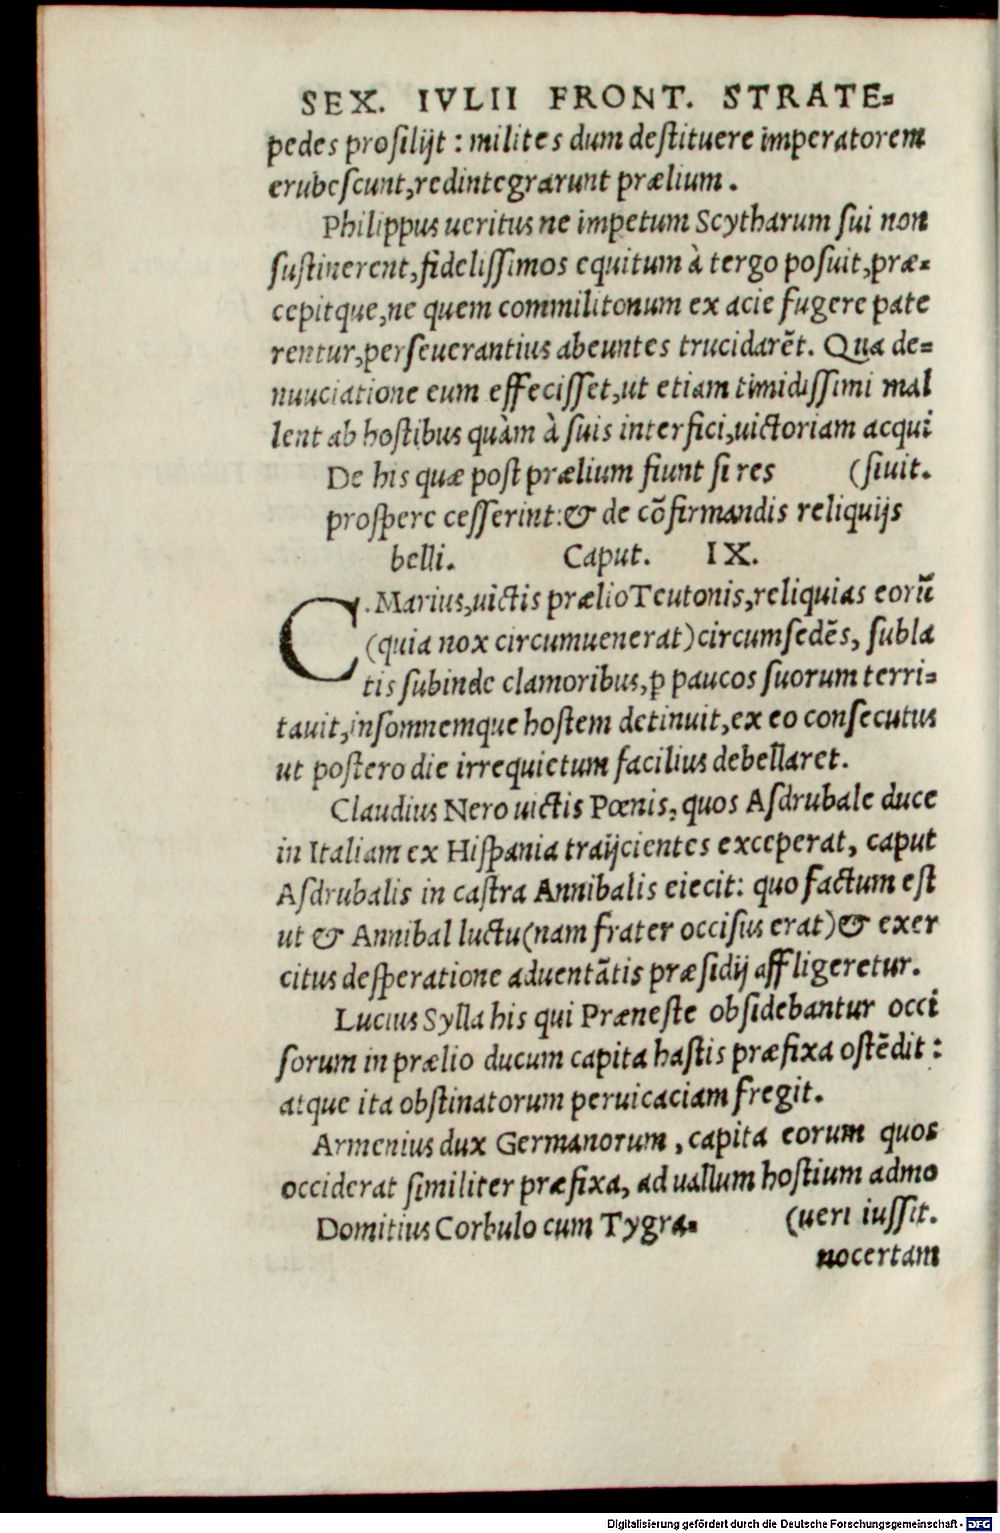 SEX. IVLII FRONT. STRATE-
pedes prosilijt : milites dum destituere imperatorem
erubescunt, redintegrarunt prælium.
Philippus ueritus ne impetum Scytharum sui non
sustinerent, fidelissimos equitum à tergo posuit, præ-
cepitque, ne quem commilitonum ex acie fugere pate
rentur, perseuerantius abeuntes trucidarēt. Qua de-
nuuciatione eum effecisset, ut etiam timidissimi mal
lent ab hostibus quàm à suis interfici, uictoriam acqui
De his quæ post prælium fiunt si res (siuit.
prospere cesserint: & de cōfirmandis reliquijs
belli. Caput. IX.
C. Marius, uictis prælio Teutonis, reliquias eorū
(quia nox circumuenerat) circumsedēs, subla
tis subinde clamoribus, p paucos suorum terri-
tauit, insomnemque hostem detinuit, ex eo consecutus
ut postero die irrequietum facilius debellaret.
Claudius Nero uictis Pœnis, quos Asdrubale duce
in Italiam ex Hispania traijcientes exceperat, caput
Asdrubalis in castra Annibalis eiecit: quo factum est
ut & Annibal luctu (nam frater occisus erat) & exer
citus desperatione aduentātis præsidij affligeretur.
Lucius Sylla his qui Præneste obsidebantur occi
sorum in prælio ducum capita hastis præfixa ostēdit :
atque ita obstinatorum peruicaciam fregit.
Armenius dux Germanorum, capita eorum quos
occiderat similiter præfixa, ad uallum hostium admo
Domitius Corbulo cum Tygra- (ueri iussit.
nocertam
Digitalisierung gefördert durch die Deutsche Forschungsgemeinschaft - DFG